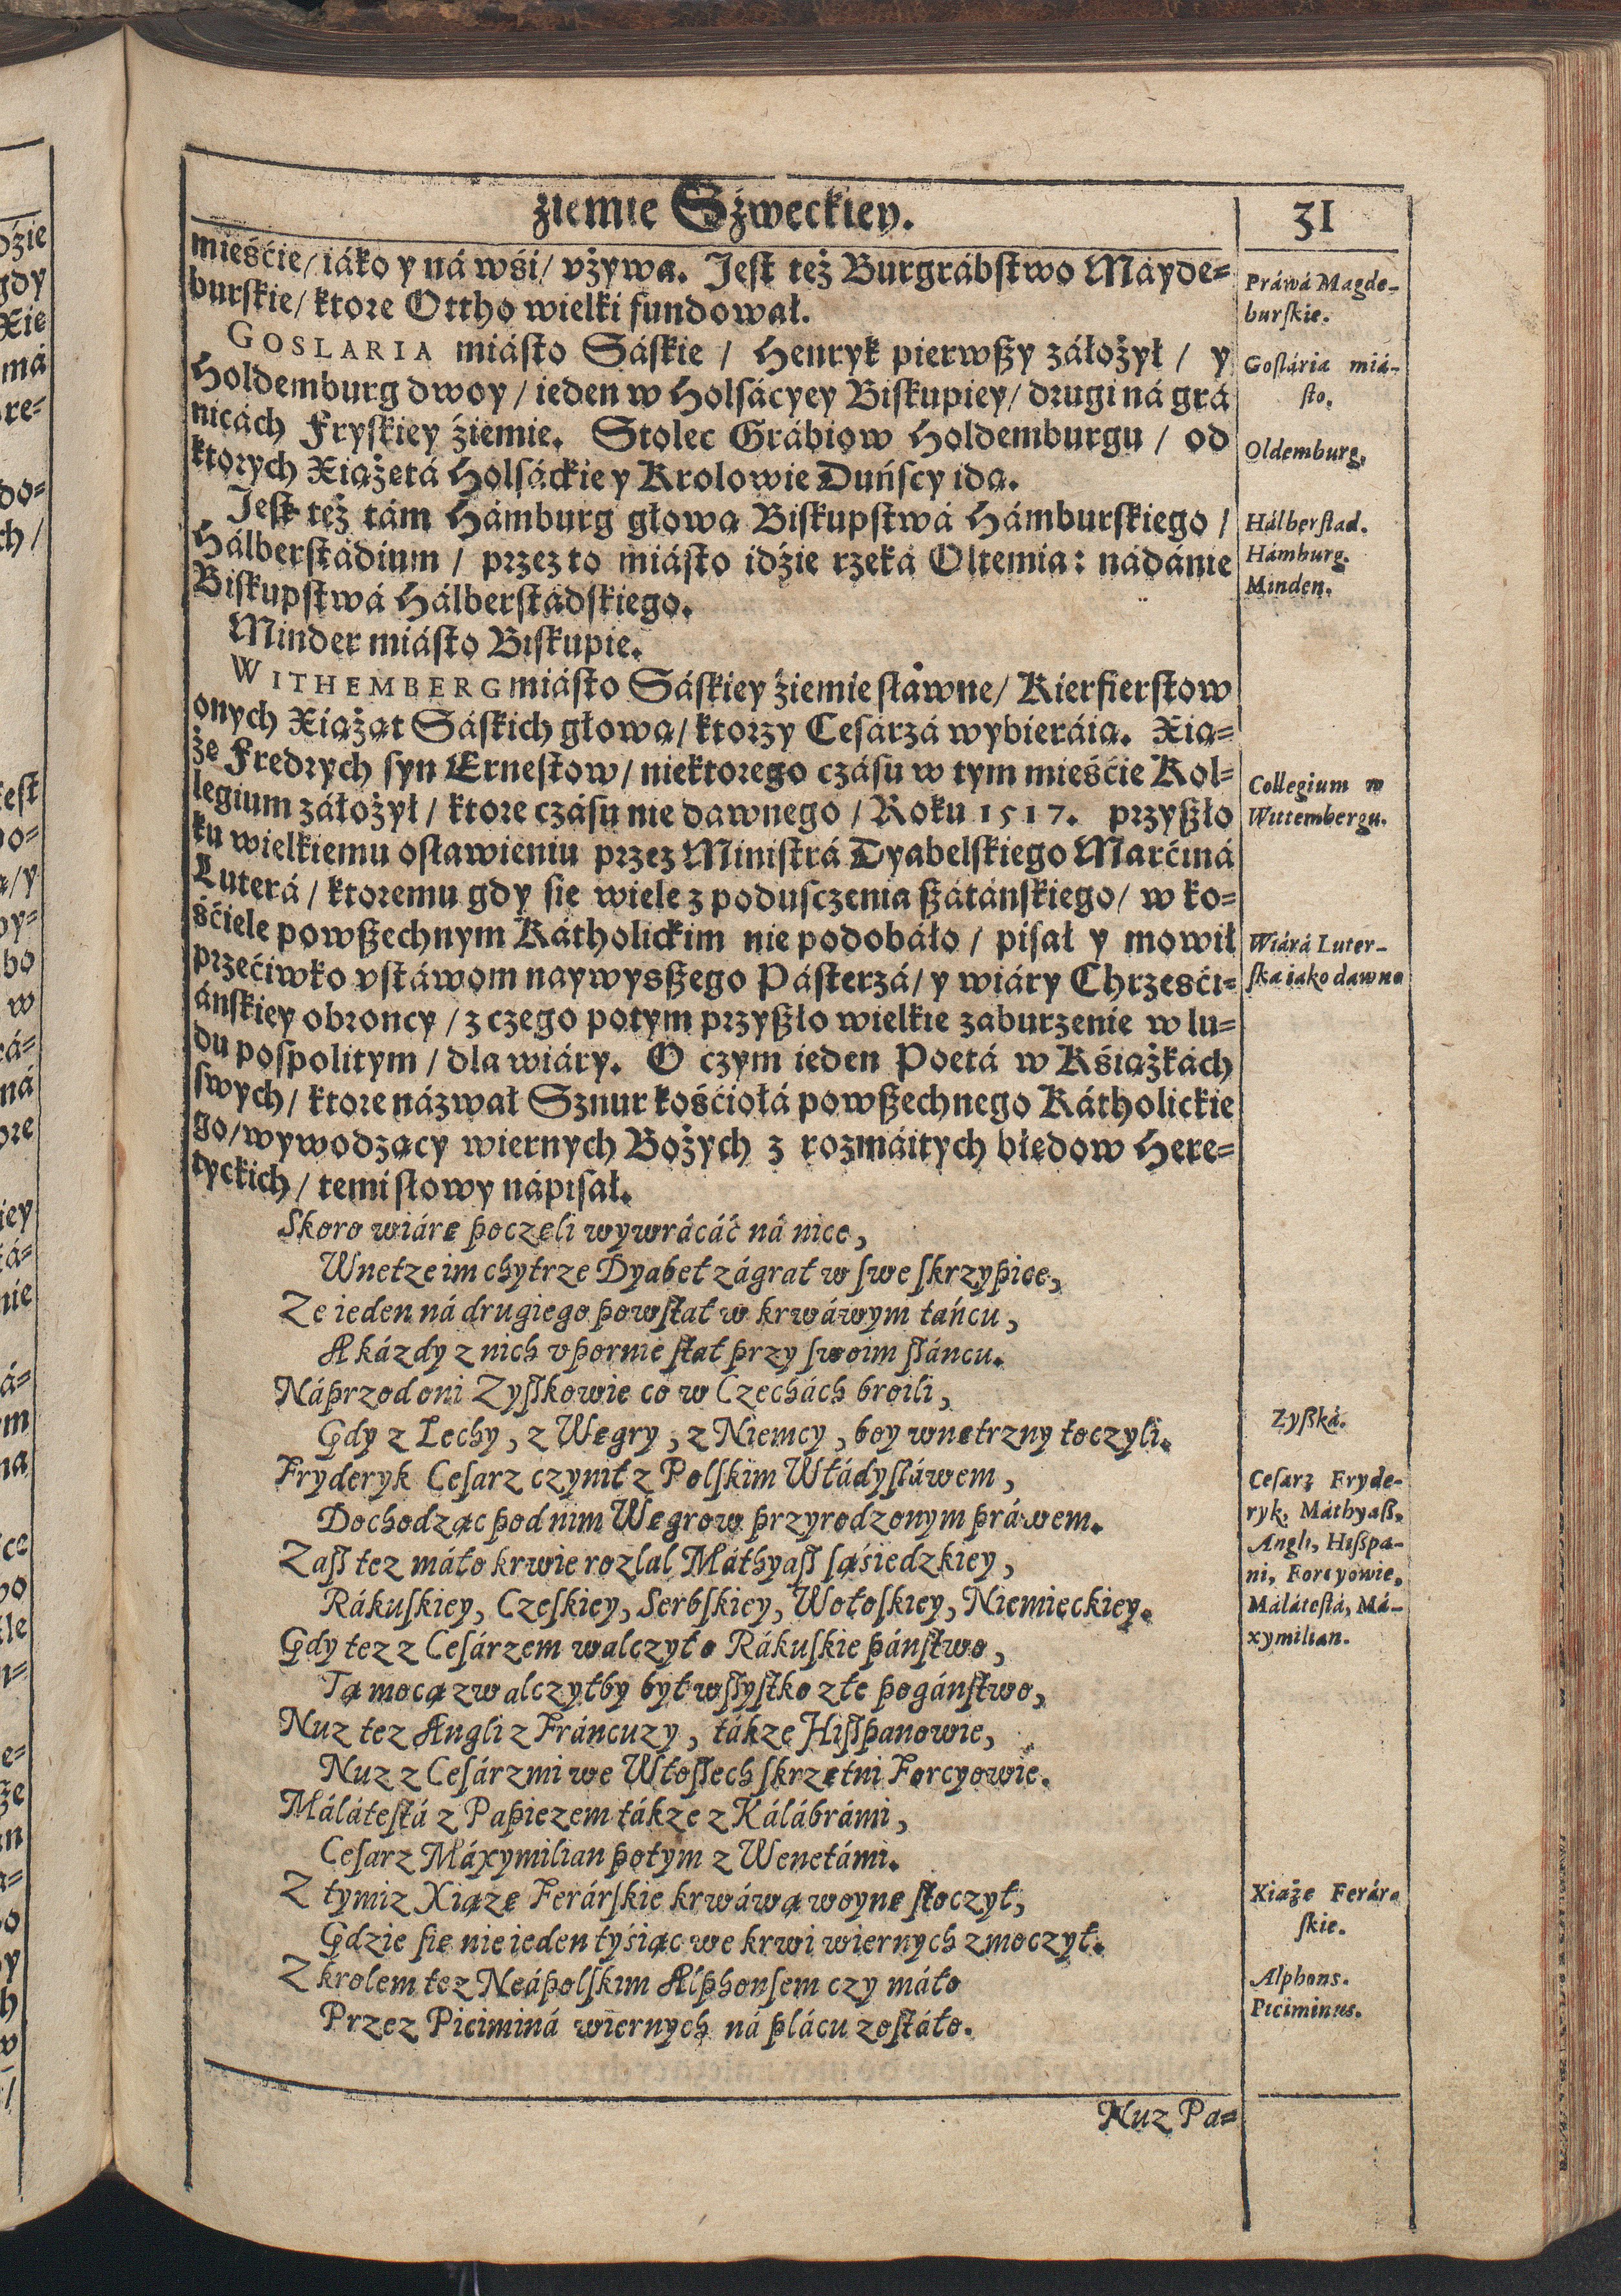 ziemie Szweckiey.
31
mieśćie/ iáko y ná wśi/ vżywa. Jest też Burgrábstwo Mayde-
burskie/ ktore Ottho wielki fundował.
GOSLARIA miásto Sáskie / Henryk pierwszy záłożył / y
Holdemburg dwoy / ieden w Holsácyey Biskupiey/ drugi ná grá
nicách Fryskiey źiemie. Stolec Grábiow Holdemburgu / od
ktorych Xiążetá Holsáckie y Krolowie Duńscy idą.
Jest też tám Hámburg głowa Biskupstwá Hámburskiego /
Hálberstádium / przez to miásto idźie rzeká Oltemia: nádánie
Biskupstwá Hálberstádskiego.
Minder miásto Biskupie.
WITHEMBERG miásto Sáskiey źiemie sławne/ Kierfierstow
onych Xiążąt Sáskich głowa/ ktorzy Cesárzá wybieráią. Xią-
że Fredrych syn Ernestow/ niektorego czásu w tym mieśćie Kol-
legium záłożył / ktore czásu nie dawnego / Roku 1517. przyszło
ku wielkiemu osławieniu przez Ministrá Dyabelskiego Marćiná
Luterá / ktoremu gdy sie wiele z podusczenia szátáńskiego/ w ko-
śćiele powszechnym Kátholickim nie podobáło / pisał y mowił
przećiwko vstáwom naywyszszego Pásterzá/ y wiáry Chrześći-
ánskiey obroncy / z czego potym przyszło wielkie zaburzenie w lu-
du pospolitym / dla wiáry. O czym ieden Poetá w Kśiążkách
swych/ ktore názwał Sznur kośćiołá powszechnego Kátholickie
go/ wywodzący wiernych Bożych z rozmáitych błędow Here-
tyckich/ temi słowy nápisał.
Skoro wiáre poczeli wywrácáć ná nice,
Wnetze im chytrze Dyabeł zágrał w swe skrzypice,
Ze ieden ná drugiego powstał w krwáwym táńcu,
A kázdy z nich vpornie stał przy swoim száncu.
Náprzod oni Zyszkowie co w Czechách broili,
Gdy z Lechy, z Wegry, z Niemcy, boy wnetrzny toczyli.
Fryderyk Cesarz czynił z Polskim Włádysłáwem,
Dochodząc pod nim Wegrow przyrodzonym práwem.
Zasz tez máło krwie rozlal Máthyasz sąsiedzkiey,
Rákuskiey, Czeskiey, Serbskiey, Wołoskiey, Niemieckiey.
Gdy tez z Cesárzem walczyło Rákuskie páństwo,
Tą mocą zwalczyłby był wszystko złe pogáństwo,
Nuz tez Angli z Fráncuzy, tákze Hiszpanowie,
Nuz z Cesárzmi we Włoszech skrzetni Forcyowie.
Málátestá z Papiezem tákze z Kálábrámi,
Cesarz Máxymilian potym z Wenetámi.
Z tymiz Xiąze Ferárskie krwáwą woyne stoczył,
Gdzie sie nie ieden tyśiąc we krwi wiernych zmoczył.
Z krolem tez Neápolskim Alphonsem czy máło
Przez Piciminá wiernych ná plácu zostáło.
Nuz Pa-
Práwá Magde-
burskie.
Goslária miá-
sto.
Oldemburg.
Hálberstad.
Hámburg.
Minden.
Collegium w
Wittembergu.
Wiárá Luter-
ska iako dawno
Zyszká.
Cesarz Fryde-
ryk, Máthyasz,
Angli, Hiszpa-
ni, Forcyowie,
Málátestá, Má-
xymilian.
Xiąże Ferár
skie.
Alphons.
Piciminus.